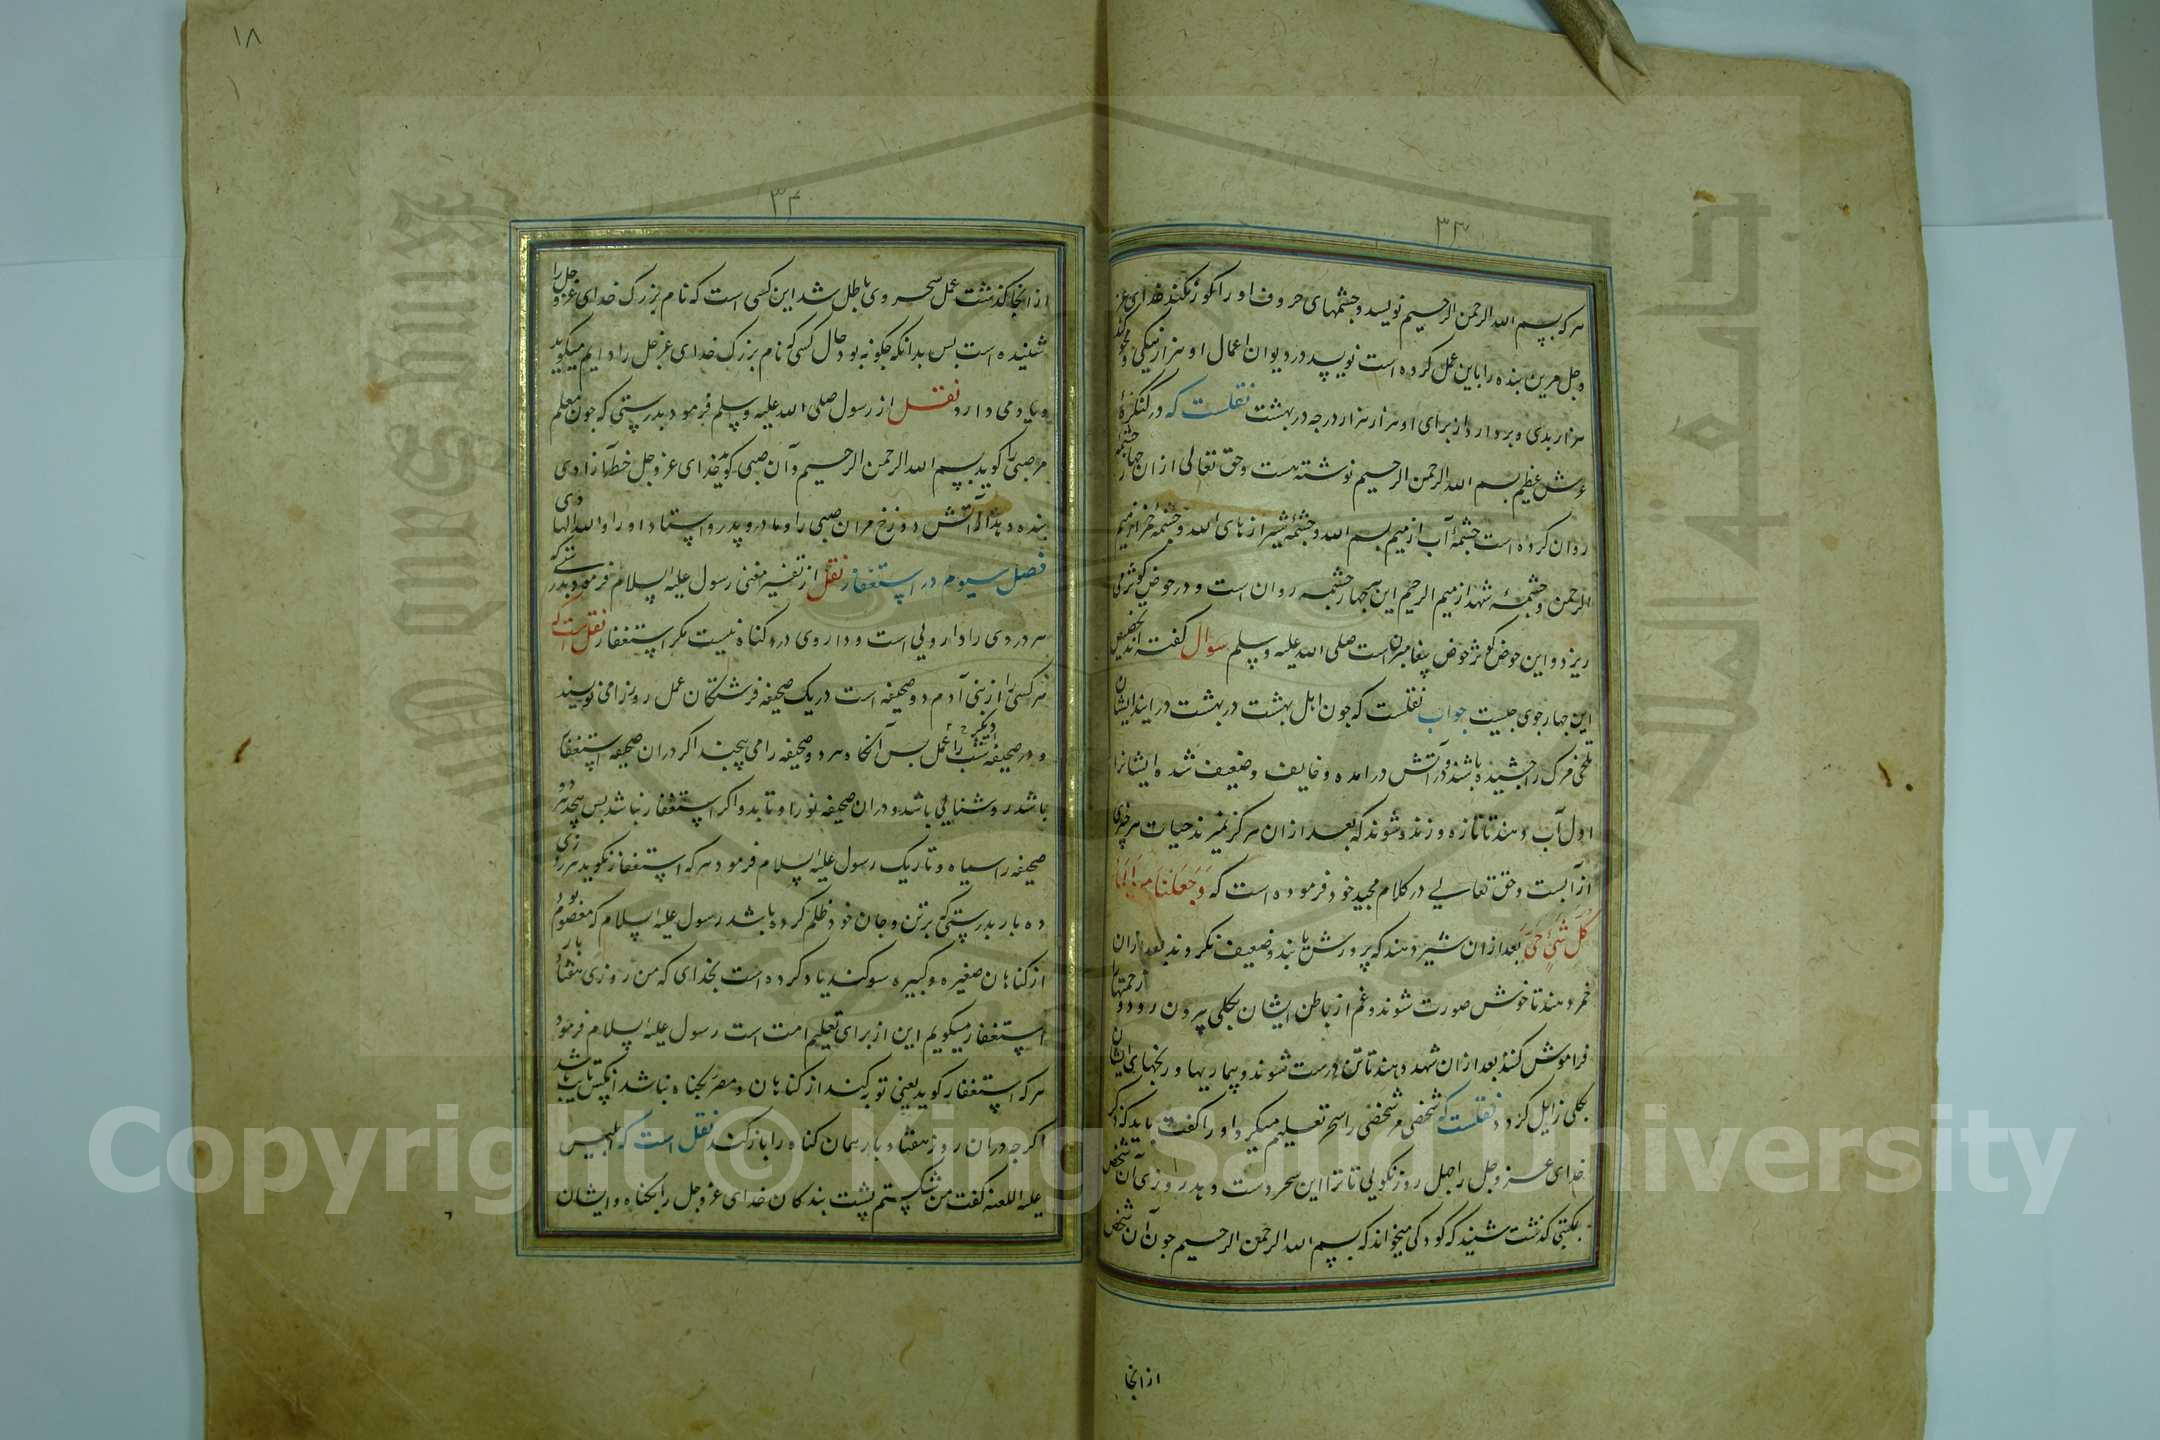 ۳۳
هر که بسم الله الرحمن الرحیم نویسد و جشمهای حروف او را نکور نکند خدای عز
و جل مرین بنده را باین عمل کرده است نویسد در دیوان اعمال او هزار نیکی و محو کند
هزار بدی و بردارد از برای او هزار هزار درجه در بهشت نقلست که در کنکرهٔ
عرش عظیم بسم الله الرحمن الرحیم نوشته هست و حق تعالی ازان جهار جشمه
روان کرده است جشمهٔ آب از میم بسم الله و جشمهٔ شیر از های الله و جشمهٔ خمر از میم
الرحمن و جشمهٔ شهد از میم الرحیم این هر جهار جشمه روان است و در حوض کوثر می
ریزد و این حوض کوثر حوض پیغامبر ماست صلی الله علیه وسلم سوال کفته اند تخصیص
این جهار جوی جیست جواب نقلست که جون اهل بهشت در بهشت در ایند ایشان
تلخی مرک را جشیده باشند و در آتش درامده و خایف و ضعیف شده ایشانرا
اول آب دهند تا تازه و زنده شوند که بعد ازان هرکز نمیرند حیات هر جیزی
از آبست و حق تعالی در کلام مجید خود فرموده است که وَجَعَلنَا مِنَ المَاءِ
كُلَّ شَيْءٍ حَيٍّ بعد ازان شیر دهند که پرورش یابند و ضعیف نکردند بعد ازان
خمر دهند تا خوش صورت شوند و غم از باطن ایشان بکلی بیرون رود و زحمتها
فراموش کنند بعد ازان شهد دهند تا تن درست شوند و بیماریها و رنجهای ایشان
بکلی زایل کردد نقلست که شخصی مر شخصی را سحر تعلیم میکرد او را کفت باید که ذکر
خدای عز و جل را جهل روز نکویی تا ترا این سحر دست دهد روزی آن شخص
بمکتبی کذشت شنید که کودکی میخواند که بسم الله الرحمن الرحیم جون آن شخص
از انجا
۱۸
۳۴
از انجا کذشت عمل سحر وی باطل شد این کسی است که نام بزرک خدای عز و جل را
شنیده است بس بدانکه جکونه بود حال کسی که نام بزرک خدای عز و جل را دایم میکوید
و یاد می دارد نقل از رسول صلی الله علیه وسلم فرمود بدرستی که جون معلم
مر صبی را کوید بسم الله الرحمن الرحیم و آن صبی کوید خدای عز و جل خط آزادی
بنده دهد از آتش دوزخ مر آن صبی را و مادر و پدر و استاد او را والله الهادی
فصل سیوم در استغفار نقل از تفسیر مغنی رسول علیه السلام فرمود بدرستی که
هر دردی را دارویی است و داروی درد کناه نیست مکر استغفار نقل است که
هر کسی را از بنی آدم دو صحیفه است در یک صحیفه فرشتکان عمل روز را می نویسند
و در صحیفه دیکر شب را عمل بس آنکاه هر دو صحیفه را می پیچند اکر دران صحیفه استغفار
باشد روشنایی باشد و دران صحیفه نور او تابد و اکر استغفار نباشد بس پیچد هر دو
صحیفه را سیاه و تاریک رسول علیه السلام فرمود هر که استغفار نکوید هر روزی
ده بار بدرستی که بر تن و جان خود ظلم کرده باشد رسول علیه السلام که معصوم بود
از کناهان صغیره و کبیره سوکند یاد کرده است بخدای که من روزی هفتاد بار
استغفار میکویم این از برای تعلیم امت است رسول علیه السلام فرمود
هر که استغفار کوید یعنی توبه کند از کناهان و مصر بکناه نباشد انکس تایب باشد
اکر جه دران روز هفتاد بار همان کناه را باز کند نقل است که ابلیس
علیه اللعنه کفت من شکستم پشت بندکان خدای عز و جل را بکناه و ایشان
Copyright © King Saud University